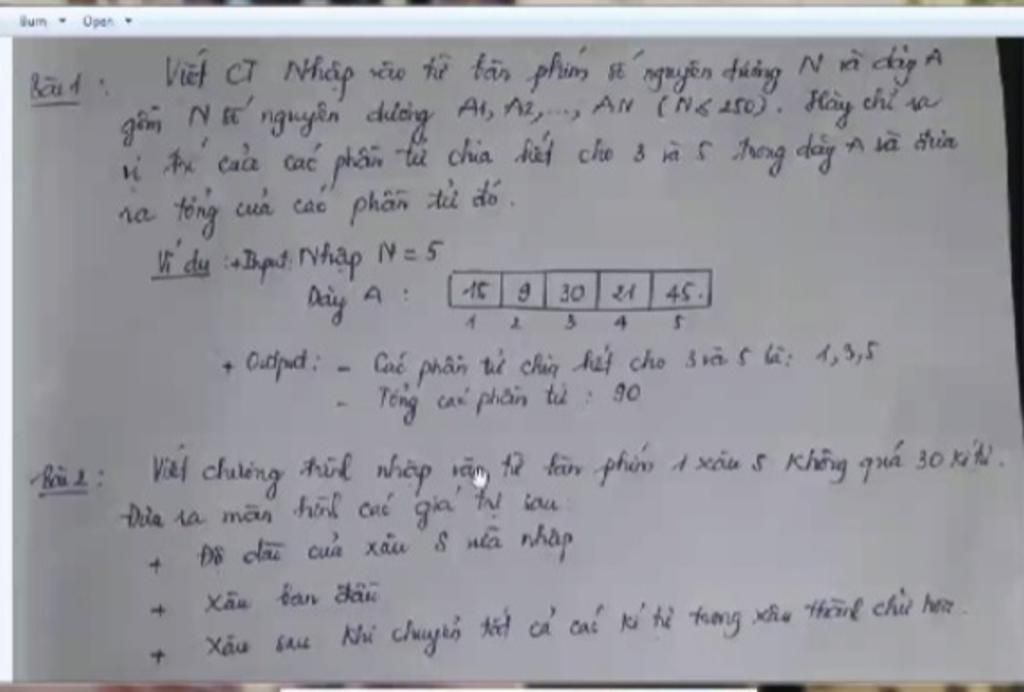 Burn Open
Bài 1 : Viết CT Nhập vào từ bàn phím số nguyên dương N và dãy A
gồm N số nguyên dương A1, A2, ..., AN (N ≤ 250). Hãy chỉ ra
vị trí của các phần tử chia hết cho 3 và 5 trong dãy A và đưa
ra tổng của các phần tử đó.
Ví dụ : + Input: Nhập N = 5
Dãy A : 15 9 30 21 45.
1 2 3 4 5
+ Output: - Các phần tử chia hết cho 3 và 5 là: 1, 3, 5
- Tổng các phần tử : 90
Bài 2 : Viết chương trình nhập vào từ bàn phím 1 xâu S không quá 30 kí tự.
Đưa ra màn hình các giá trị sau:
+ Độ dài của xâu S vừa nhập
+ Xâu ban đầu
+ Xâu sau khi chuyển tất cả các kí tự trong xâu thành chữ hoa.